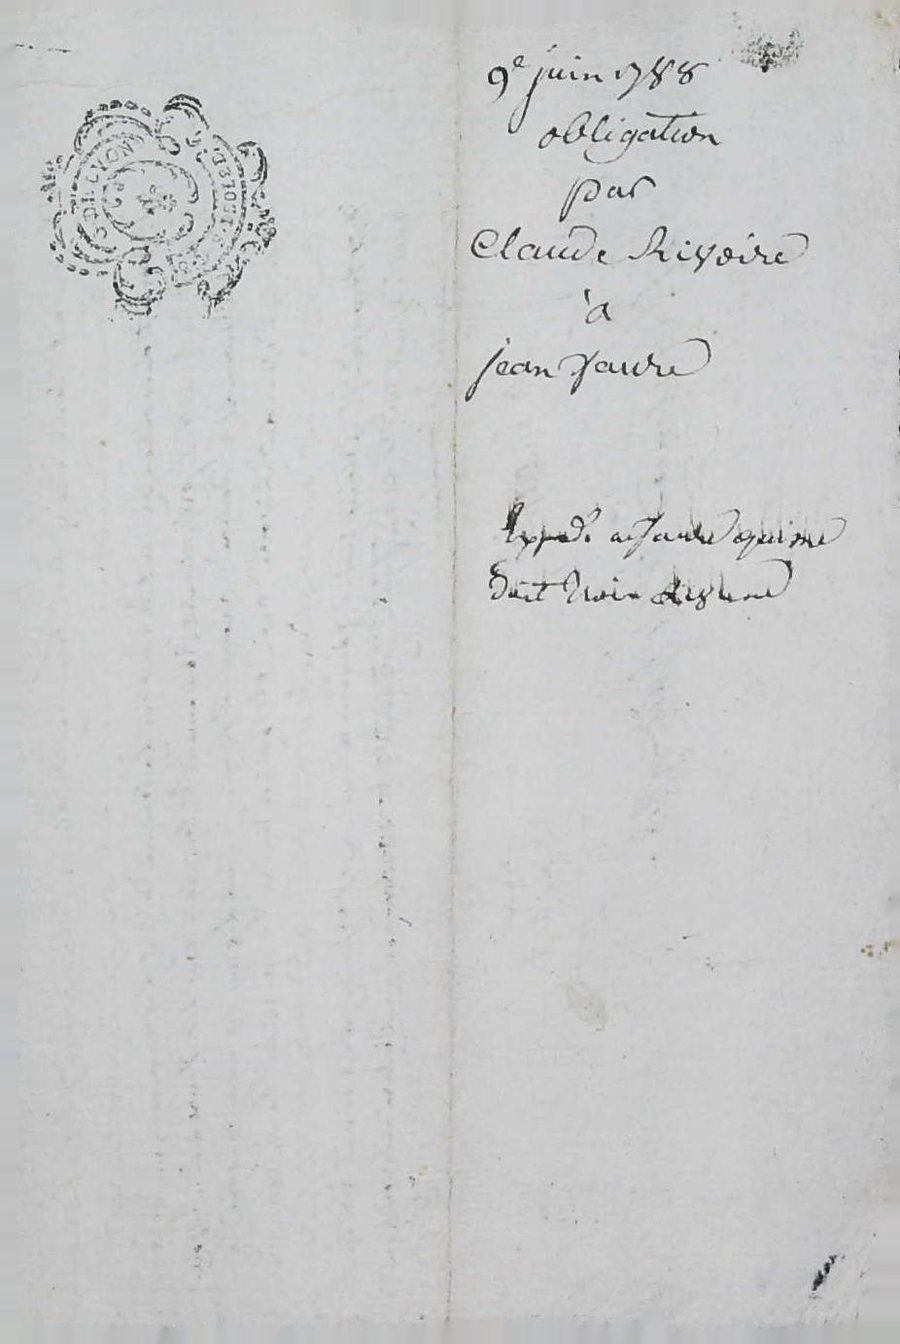 DE LYON
9e juin 1788
obligation
par
Claude Rivoire
à
jean faure
Expedé a faure qui me
doit